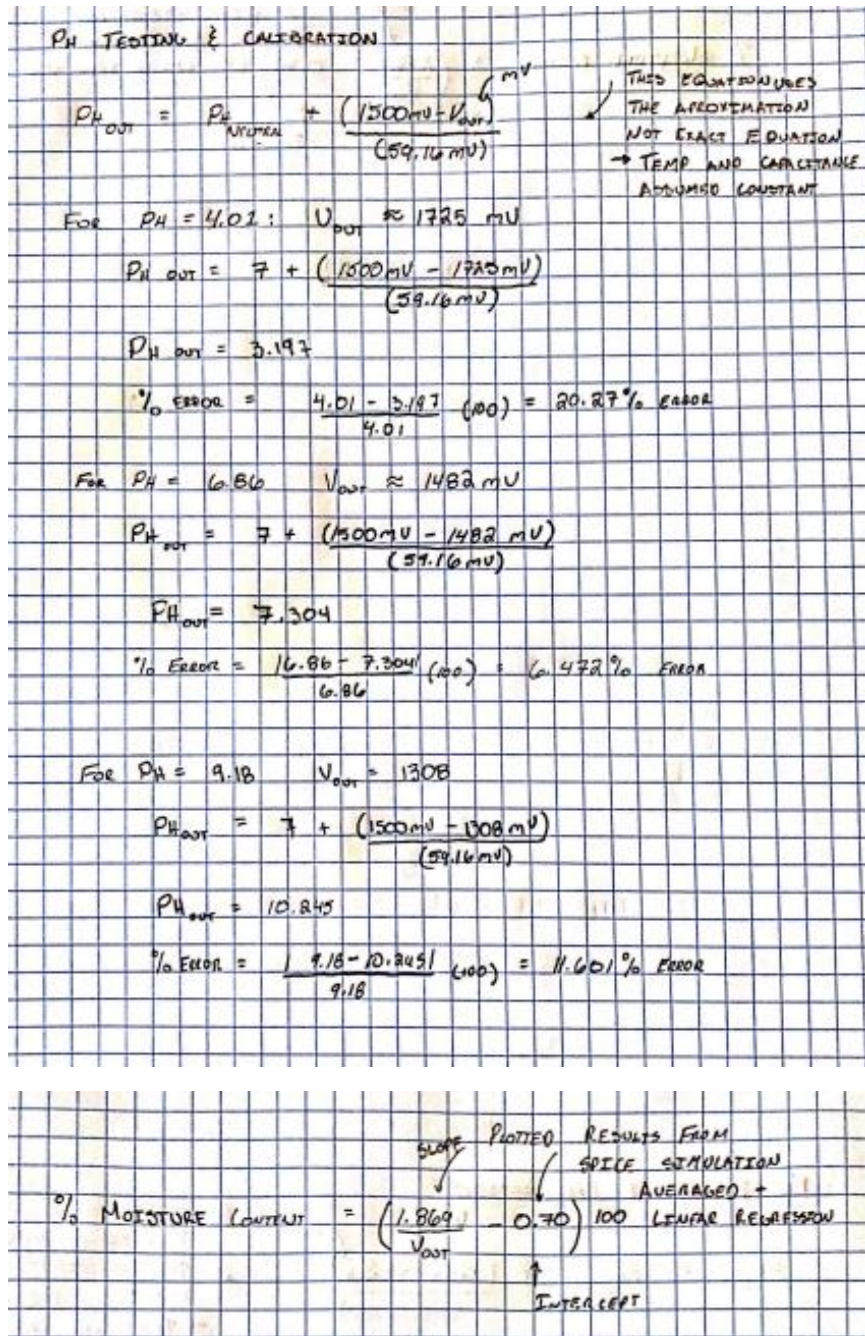 PH TESTING & CALIBRATION
PH OUT = PH NEUTRAL + (1500mV - VOUT) / (59.16 mV)
mV
THIS EQUATION USES
THE APROXIMATION
NOT EXACT EQUATION
→ TEMP AND CAPACITANCE
ASSUMED CONSTANT
FOR PH = 4.01: VOUT ≈ 1725 mV
PH OUT = 7 + (1500mV - 1725mV) / (59.16mV)
PH OUT = 3.197
% ERROR = 4.01 - 3.197 / 4.01 (100) = 20.27% ERROR
FOR PH = 6.86 VOUT ≈ 1482 mV
PH OUT = 7 + (1500mV - 1482 mV) / (59.16mV)
PH OUT = 7.304
% ERROR = |6.86 - 7.304| / 6.86 (100) = 6.472% ERROR
FOR PH = 9.18 VOUT = 1308
PH OUT = 7 + (1500mV - 1308mV) / (59.16mV)
PH OUT = 10.245
% ERROR = |9.18 - 10.245| / 9.18 (100) = 11.601% ERROR
SLOPE
PLOTTED RESULTS FROM
SPICE SIMULATION
AVERAGED +
LINEAR REGRESSION
% MOISTURE CONTENT = (1.869 / VOUT - 0.70) 100
INTERCEPT